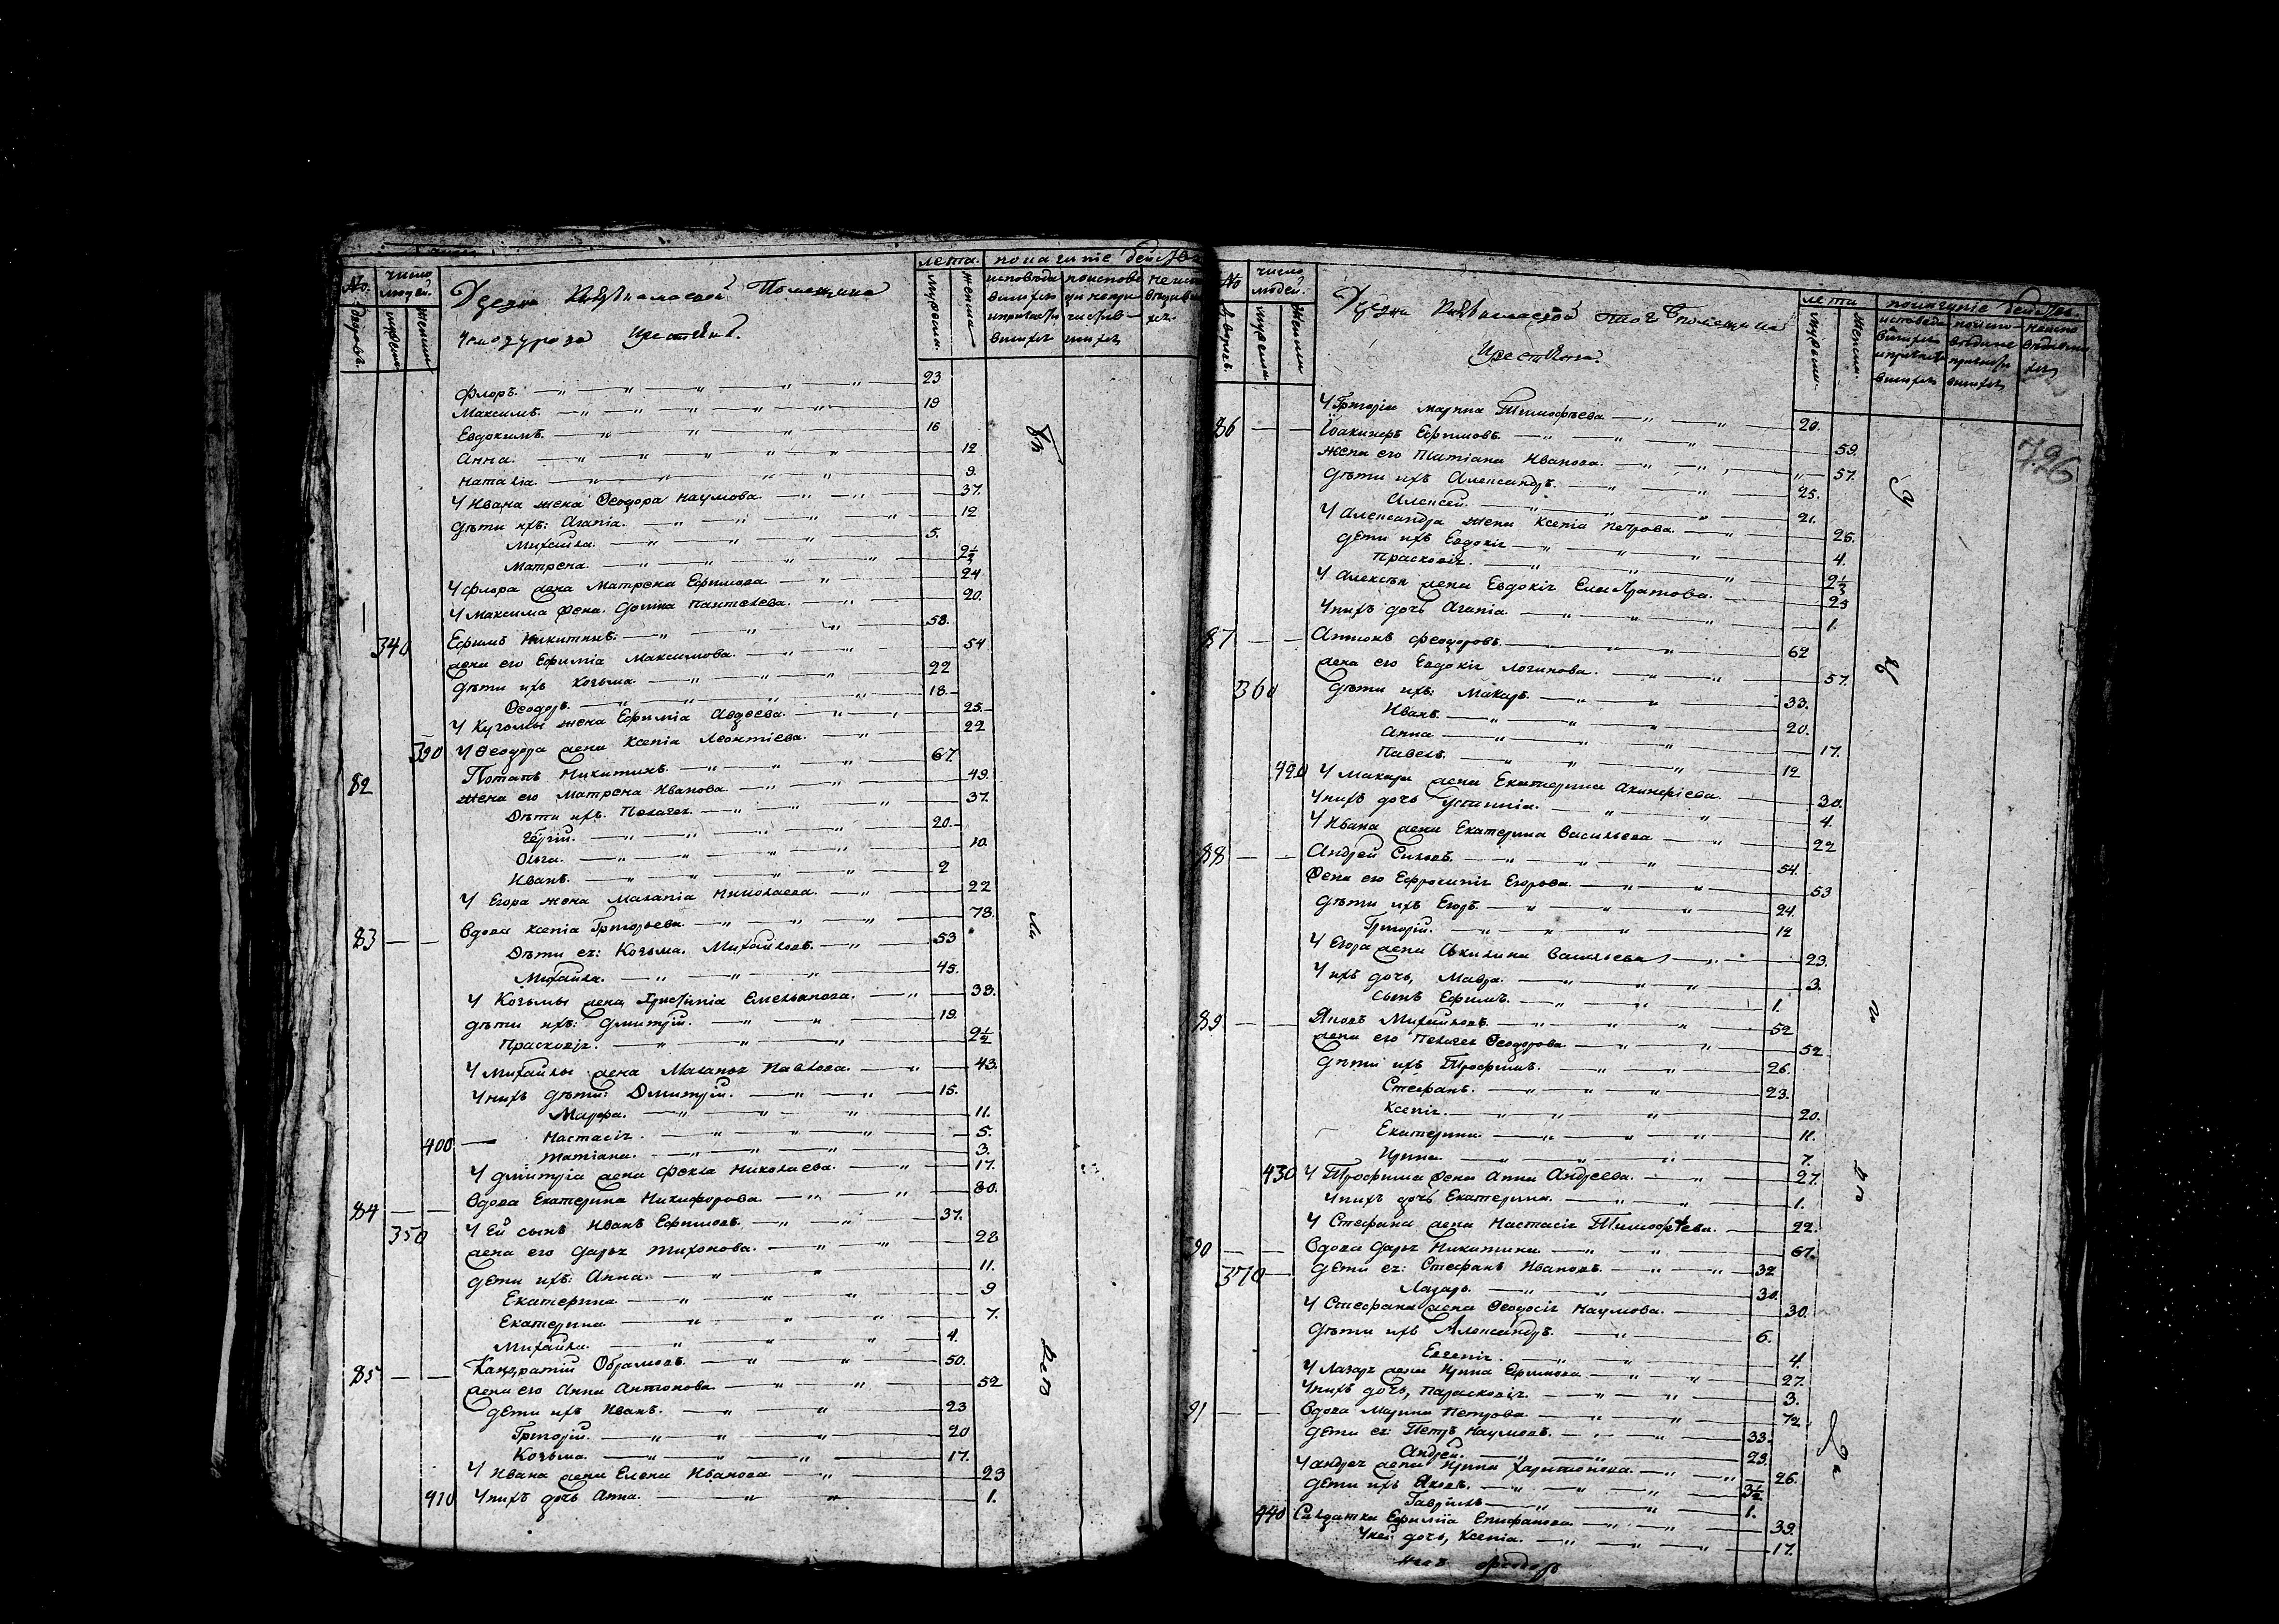 лета.
№
число людей.
мужеска
женска
Помещика
крестьяне.
Флоръ. 23
Максимъ. 19
Евдокимъ. 16
Анна. 12
Наталiа 9.
У Ивана жена Феодора Наумова. 37.
Дѣти ихъ: Агапiа. 12
Михайла. 5.
Матрена. 2 1/2
У Флора жена Матрена Ефимова 24
У Максима жена Пантелева. 20.
340 Ефимъ Никитинъ. 58.
жена его Ефимiа Максимова. 54
Дѣти ихъ Козьма 22
Феодоръ. 18.
У Кузьмы жена Ефимiа Авдеева. 25.
390 У Феодора жена Ксенiа Леонтiева. 22
82 Потапъ Никитинъ. 67.
жена его Матрена Иванова 49.
Дѣти ихъ. Пелагея. 37.
20.
Ольга. 10.
Иванъ. 2
У Егора жена Маланiа Николаева. 22
83 Вдова Ксенiа Григорьева. 78.
Дѣти ея: Козьма. Михайловъ. 53
Михайла. 45.
У Козьмы жена Христинiа Емельянова. 38.
Дѣти ихъ: Дмитрiй. 19.
Прасковiя. 2 1/2
У Михайлы жена Маланья Павлова. 43.
У нихъ дѣти: Дмитрiй. 15.
Марфа. 11.
400 Настасiя. 5.
Татiана. 3.
У Дмитрiа жена Фекла Николаева. 17.
84 Вдова Екатерина Никифорова. 80.
350 У ей сынъ Иванъ Ефимовъ. 37.
жена его Дарья Тихонова. 28
Дѣти ихъ: Анна. 11.
Екатерина 9
Екатерина 7.
Михайла. 4.
85 Кандратiй Обрамовъ. 50.
жена его Анна Антонова 52
Дѣти ихъ Иванъ. 23
Григорiй. 20
Козьма. 17.
У Ивана жена Елена Иванова. 23
410 У нихъ дочь Анна. 1.
№
число людей.
лета
помещика
крестьяне.
726
У Григорiа Марина Тимофѣева 20.
86 Ефимовъ. 59.
жена его Татiана Иванова. 57.
Дѣти ихъ Александръ. 25.
Алексей. 21.
У Александра жена Ксенiа Петрова. 26.
Дѣти ихъ Евдокiя 4.
Прасковiя. 2 1/2
У Алексѣя жена Евдокiя 25
У нихъ дочь Агапiа. 1.
87 Антонъ Феодоровъ. 62
жена его Евдокiя Логинова. 57.
360 Дѣти ихъ: Макаръ. 33.
Иванъ. 20.
Анна 17.
Павелъ. 12
420 У Макара жена Екатерина Акинфiева. 30.
У нихъ дочь Устинiа. 4.
У Ивана жена Екатерина Васильева 22
88 Андрей Силовъ. 54.
жена его Ефросинiя Егорова. 53
Дѣти ихъ Егоръ. 24.
Григорiй. 12
У Егора жена Акилина Васильева 23.
У ихъ дочь, Мавра. 3.
сынъ Ефимъ. 1.
89 Яковъ Михайловъ. 52
жена его Пелагея Феодорова 52
Дѣти ихъ Трофимъ. 26.
Стефанъ. 23.
Ксенiя. 20.
Екатерина. 11.
Ирина 7.
430 У Трофима жена Анна Андреева. 27.
У нихъ дочь Екатерина. 1.
У Стефана жена Настасiя Тимофѣева. 22.
90 Вдова Дарья Никитина 67.
370 Дѣти ея: Стефанъ Ивановъ. 32
Лазарь. 30.
У Стефана жена Феодосiя Наумова. 30.
Дѣти ихъ Александръ. 6.
Евгенiя. 4.
У Лазаря жена Ирина Ефимова 27.
У нихъ дочь, Парасковiя. 3.
91 Вдова Марина Петрова. 72.
Дѣти ея: Петръ Наумовъ. 33.
Андрей. 23.
У Андрея жена Ирина Харитонова. 26.
Дѣти ихъ Яковъ. 3 1/2
Гаврiилъ 1.
440 Салдатка Ефимiа Епифанова 39.
У ней дочь, Ксенiа. 17.